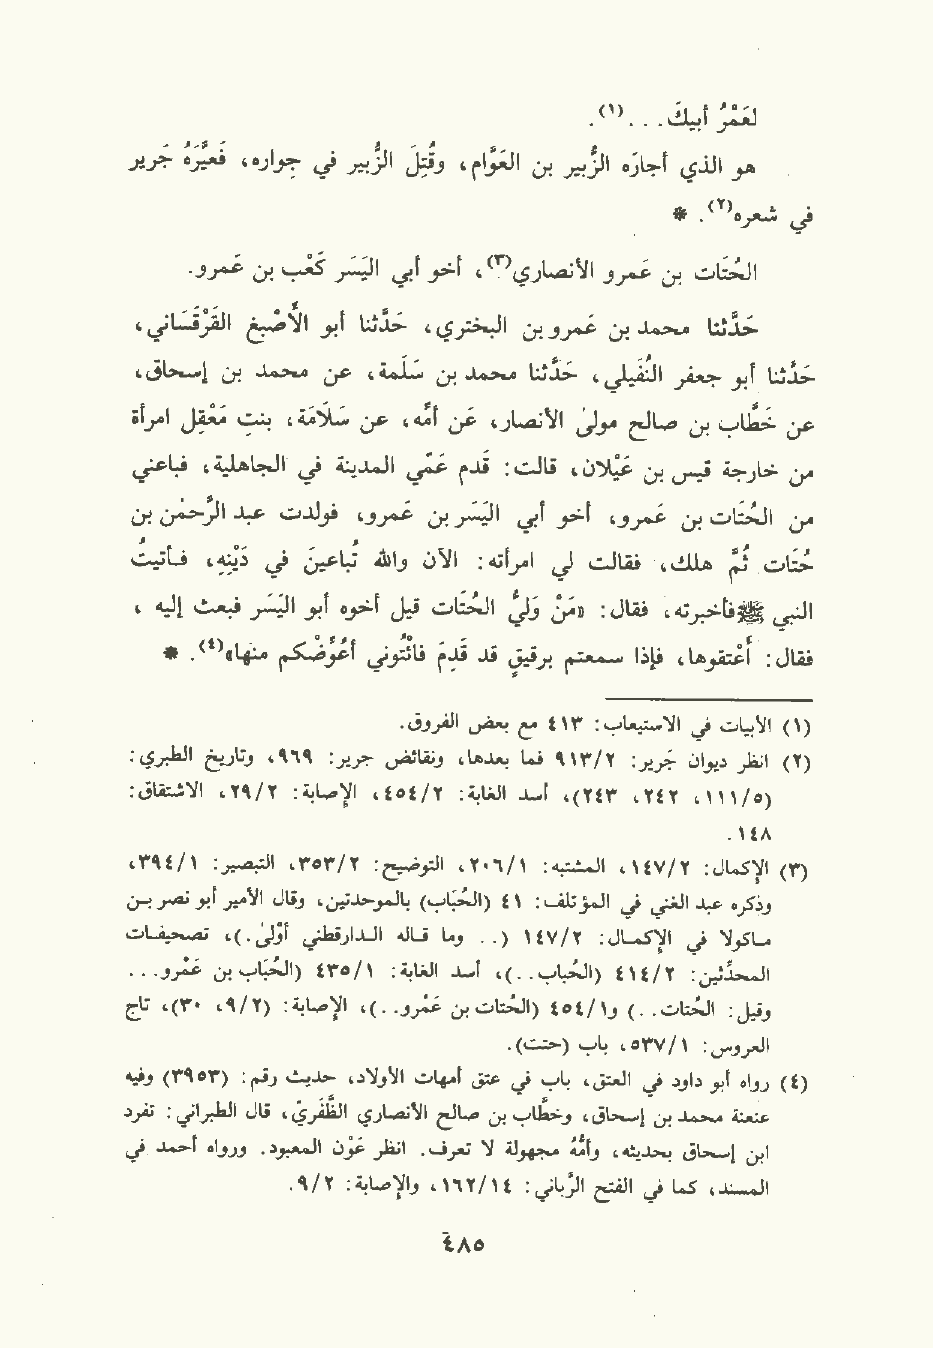 لَعَمْرُ أبيكَ. . .(١).
هو الذي أجارَه الزُّبير بن العَوَّام، وقُتِلَ الزُّبير في جِواره، فَعَيَّرَهُ جَرير
في شعره(٢). *
الحُتَات بن عَمرو الأنصاري(٣)، أخو أبي اليَسَر كَعْب بن عَمرو.
حَدَّثنا محمد بن عَمرو بن البختري، حَدَّثنا أبو الأَصْبغ القَرْقَسَاني،
حَدَّثنا أبو جعفر النُّفَيلي، حَدَّثنا محمد بن سَلَمة، عن محمد بن إسحاق،
عن خَطَّاب بن صالح مولىٰ الأنصار، عن أمّه، عن سَلاَمَة، بنتِ مَعْقِل امرأة
من خارجة قيس بن عَيْلان، قالت: قَدم عَمِّي المدينة في الجاهلية، فباعني
من الحُتَات بن عَمرو، أخو أبي اليَسَر بن عَمرو، فولدت عبد الرَّحمٰن بن
حُتات ثُمَّ هلك، فقالت لي امرأته: الآن والله تُباعينَ في دَيْنِهِ، فأتيتُ
النبي ﷺ فأخبرته، فقال: «مَنْ وَليُّ الحُتَات قيل أخوه أبو اليَسَر فبعث إليه ،
فقال: أَعتقوها، فإذا سمعتم برقيقٍ قد قَدمَ فائْتُوني أعُوِّضْكم منها»(٤). *
(١) الأبيات في الاستيعاب: ٤١٣ مع بعض الفروق.
(٢) انظر ديوان جَرير: ٩١٣/٢ فما بعدها، ونقائض جرير: ٩٦٩، وتاريخ الطبري:
(١١١/٥، ٢٤٢، ٢٤٣)، أسد الغابة: ٤٥٤/٢، الإصابة: ٢٩/٢، الاشتقاق:
١٤٨.
(٣) الإكمال: ١٤٧/٢، المشتبه: ٢٠٦/١، التوضيح: ٣٥٣/٢، التبصير: ٣٩٤/١،
وذكره عبد الغني في المؤتلف: ٤١ (الحُبَاب) بالموحدتين، وقال الأمير أبو نصر بن
ماكولا في الإكمال: ١٤٧/٢ (.. وما قاله الدارقطني أوْلىٰ.)، تصحيفات
المحدِّثين: ٤١٤/٢ (الحُتاب..)، أسد الغابة: ٤٣٥/١ (الحُبَاب بن عَمْرو...
وقيل: الحُتات..) و٤٥٤/١ (الحُتات بن عَمْرو..)، الإصابة: (٩/٢، ٣٠)، تاج
العروس: ٥٣٧/١، باب (حتت).
(٤) رواه أبو داود في العتق، باب في عتق أمهات الأولاد، حديث رقم: (٣٩٥٣) وفيه
عنعنة محمد بن إسحاق، وخطّاب بن صالح الأنصاري الظَّفَريّ، قال الطبراني: تفرد
ابن إسحاق بحديثه، وأمّهُ مجهولة لا تعرف. انظر عَوْن المعبود. ورواه أحمد في
المسند، كما في الفتح الربَّاني: ١٦٢/١٤، والإصابة: ٩/٢.
٤٨٥